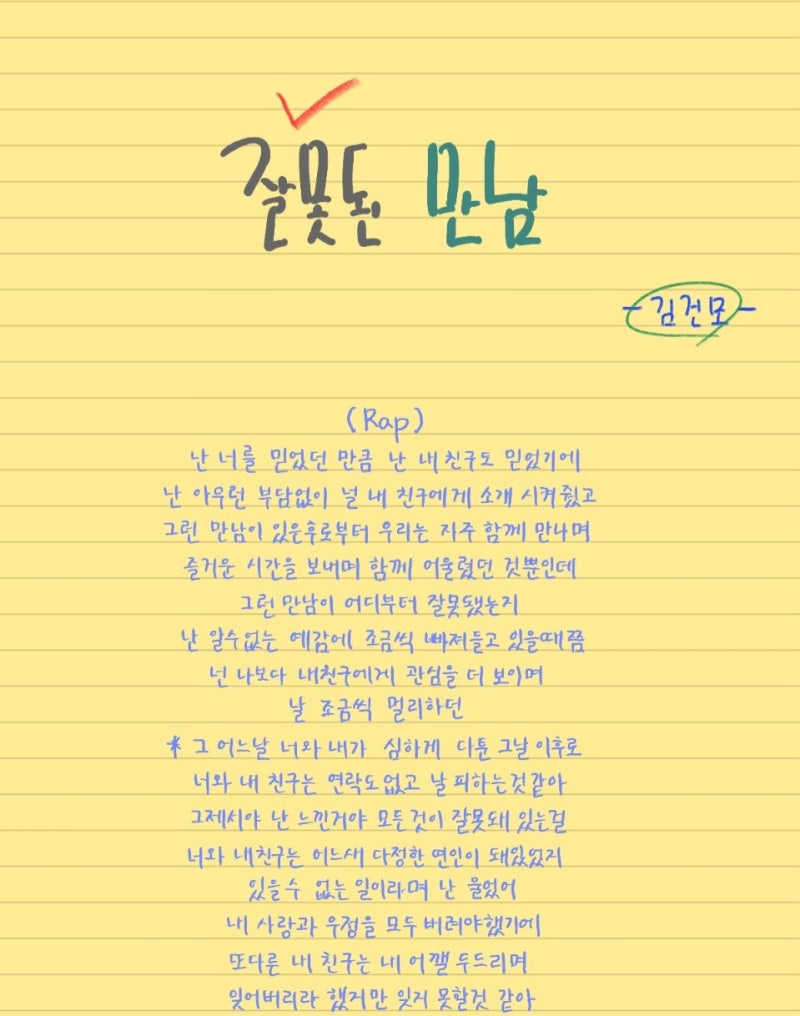 잘못된 만남
-김건모-
(Rap)
난 너를 믿었던 만큼 난 내 친구도 믿었기에
난 아무런 부담없이 널 내 친구에게 소개 시켜줬고
그런 만남이 있은후로부터 우리는 자주 함께 만나며
즐거운 시간을 보내며 함께 어울렸던 것뿐인데
그런 만남이 어디부터 잘못됐는지
난 알수없는 예감에 조금씩 빠져들고 있을때쯤
넌 나보다 내친구에게 관심을 더 보이며
날 조금씩 멀리하던
* 그 어느날 너와 내가 심하게 다툰 그날 이후로
너와 내 친구는 연락도 없고 날 피하는것 같아
그제서야 난 느낀거야 모든것이 잘못돼 있는걸
너와 내친구는 어느새 다정한 연인이 돼있었지
있을수 없는 일이라며 난 울었어
내 사랑과 우정을 모두 버려야했기에
또다른 내 친구는 내 어깰 두드리며
잊어버리라 했지만 잊지 못할것 같아